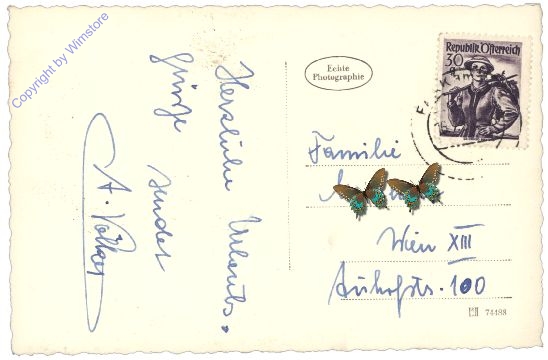 Copyright by Wimstore
Herzliche Urlaubs-
grüße
sendet
A. Völker
Echte
Photographie
Republik Österreich
30
g
Familie
Wien XIII
Auhofstr. 100
74488